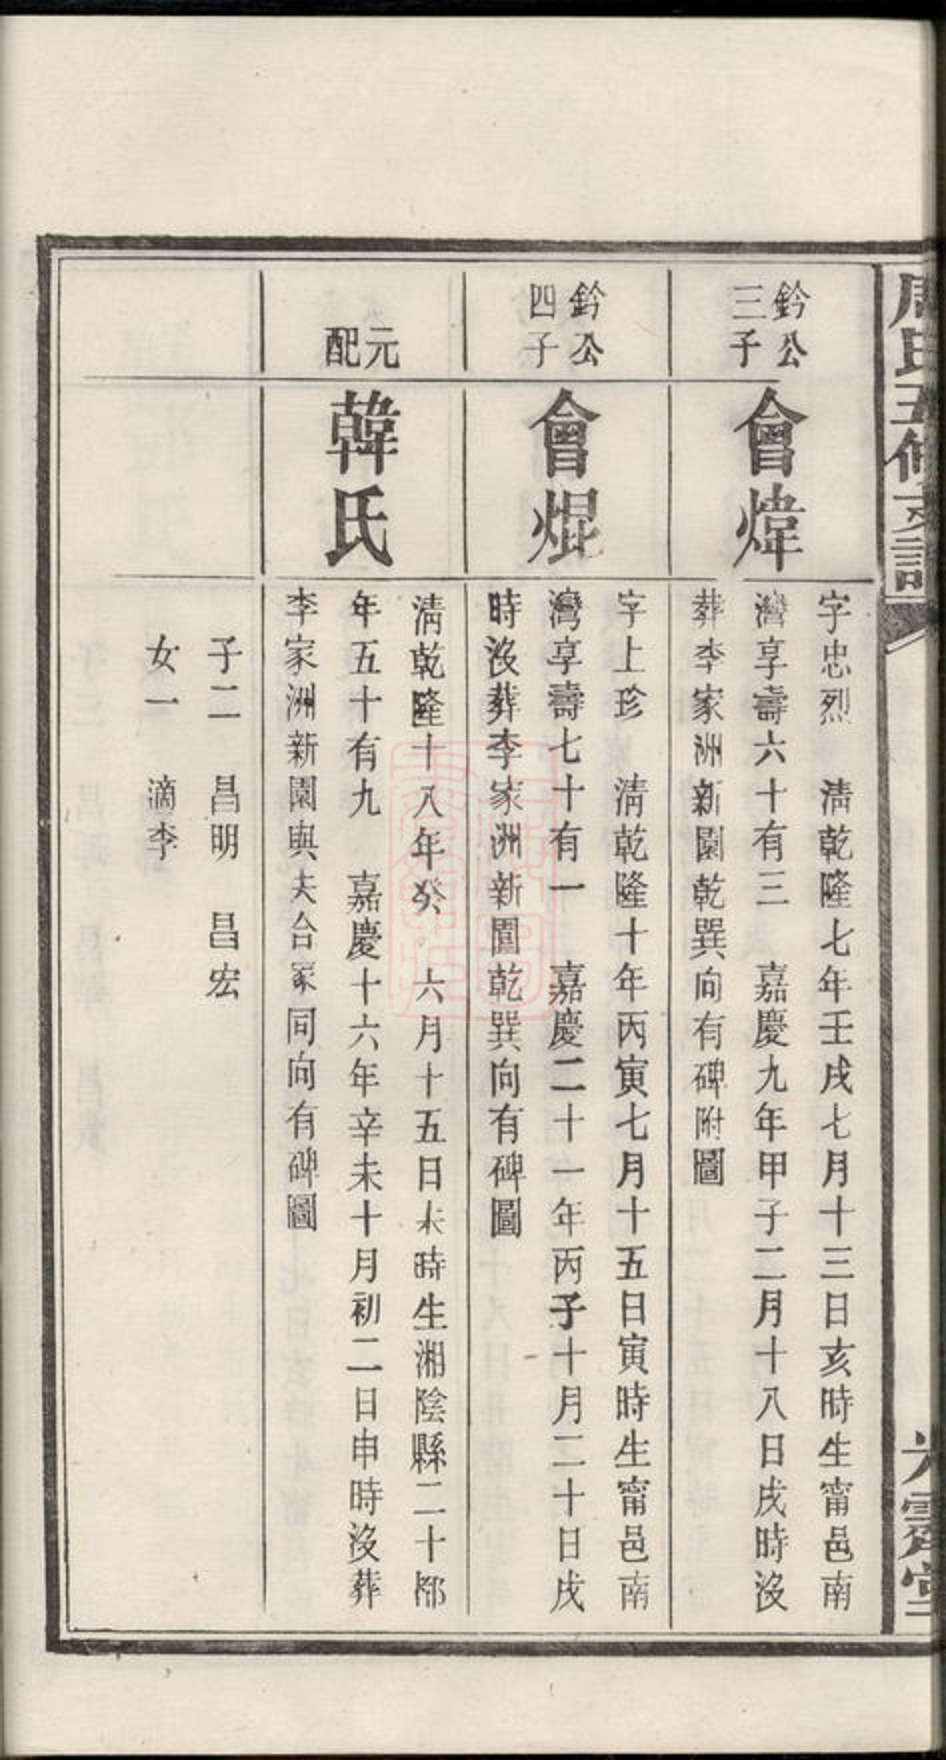 周氏五修支譜
鈐公
三子
會煒
字忠烈 清乾隆七年壬戌七月十三日亥時生甯邑南
灣享壽六十有三 嘉慶九年甲子二月十八日戌時沒
葬李家洲新園乾巽向有碑附圖
鈐公
四子
會焜
字上珍 清乾隆十年丙寅七月十五日寅時生甯邑南
灣享壽七十有一 嘉慶二十一年丙子十月二十日戌
時沒葬李家洲新園乾巽向有碑圖
元
配
韓氏
清乾隆十八年癸 六月十五日未時生湘陰縣二十都
年五十有九 嘉慶十六年辛未十月初二日申時沒葬
李家洲新園與夫合冢同向有碑圖
子二 昌明 昌宏
女一 適李